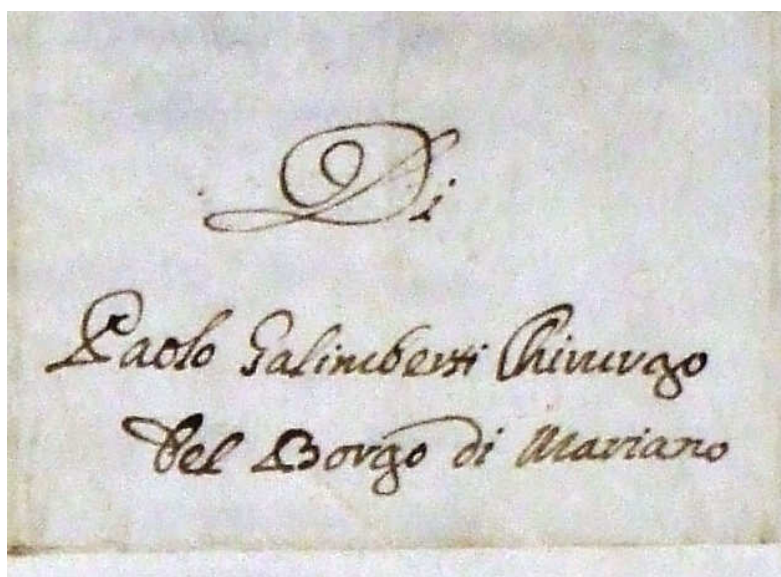 Di
Paolo Galimberti Chirurgo
Del Borgo di Mariano